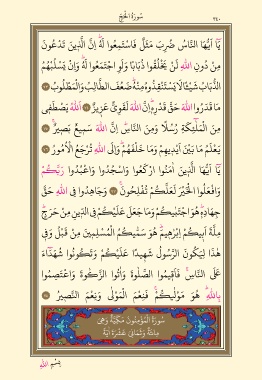 سُورَةُ الْحَجِّ ٣٤٠
يَٓا اَيُّهَا النَّاسُ ضُرِبَ مَثَلٌ فَاسْتَمِعُوا لَهُۜ اِنَّ الَّذٖينَ تَدْعُونَ
مِنْ دُونِ اللّٰهِ لَنْ يَخْلُقُوا ذُبَابًا وَلَوِ اجْتَمَعُوا لَهُۜ وَاِنْ يَسْلُبْهُمُ
الذُّبَابُ شَيْـًٔا لَا يَسْتَنْقِذُوهُ مِنْهُۜ ضَعُفَ الطَّالِبُ وَالْمَطْلُوبُ ﴿٧٣﴾
مَا قَدَرُوا اللّٰهَ حَقَّ قَدْرِهٖۜ اِنَّ اللّٰهَ لَقَوِيٌّ عَزٖيزٌ ﴿٧٤﴾ اَللّٰهُ يَصْطَفٖي
مِنَ الْمَلٰٓئِكَةِ رُسُلًا وَمِنَ النَّاسِۜ اِنَّ اللّٰهَ سَمٖيعٌ بَصٖيرٌ ﴿٧٥﴾
يَعْلَمُ مَا بَيْنَ اَيْدٖيهِمْ وَمَا خَلْفَهُمْۜ وَاِلَى اللّٰهِ تُرْجَعُ الْاُمُورُ ﴿٧٦﴾
يَٓا اَيُّهَا الَّذٖينَ اٰمَنُوا ارْكَعُوا وَاسْجُدُوا وَاعْبُدُوا رَبَّكُمْ
وَافْعَلُوا الْخَيْرَ لَعَلَّكُمْ تُفْلِحُونَ ﴿٧٧﴾ وَجَاهِدُوا فِي اللّٰهِ حَقَّ
جِهَادِهٖۜ هُوَ اجْتَبٰيكُمْ وَمَا جَعَلَ عَلَيْكُمْ فِي الدّٖينِ مِنْ حَرَجٍۜ
مِلَّةَ اَبٖيكُمْ اِبْرٰهٖيمَۜ هُوَ سَمّٰيكُمُ الْمُسْلِمٖينَ مِنْ قَبْلُ وَفٖي
هٰذَا لِيَكُونَ الرَّسُولُ شَهٖيدًا عَلَيْكُمْ وَتَكُونُوا شُهَدَٓاءَ
عَلَى النَّاسِۚ فَاَقٖيمُوا الصَّلٰوةَ وَاٰتُوا الزَّكٰوةَ وَاعْتَصِمُوا
بِاللّٰهِۜ هُوَ مَوْلٰيكُمْۚ فَنِعْمَ الْمَوْلٰى وَنِعْمَ النَّصٖيرُ ﴿٧٨﴾
سُورَةُ الْمُؤْمِنُونَ مَكِّيَّةٌ وَهِيَ
مِائَةٌ وَثَمَانِيَ عَشْرَةَ اٰيَةً
بِسْمِ اللّٰهِ